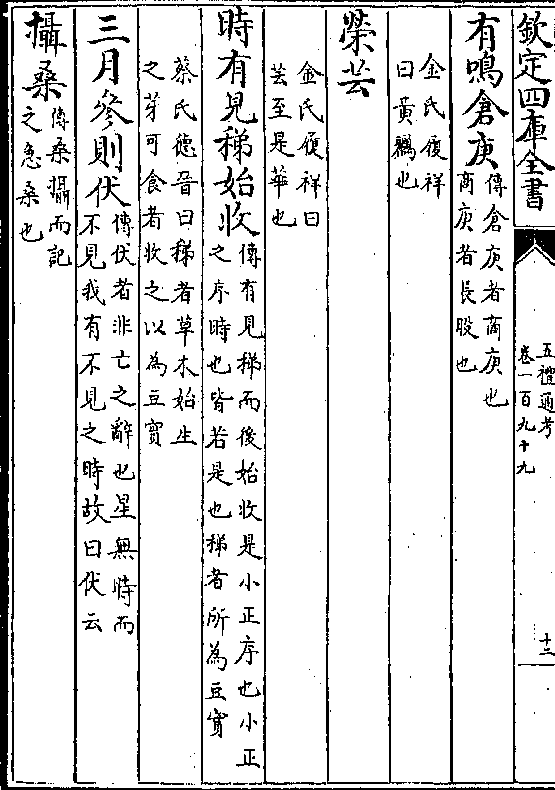 欽定四庫全書
五禮通考
卷一百九十九
十二
有鳴倉庚傳倉庚者商庚也
商庚者長股也
金氏履祥
曰黄鸝也
榮芸
金氏履祥曰
芸至是華也
時有見稊始收傳有見稊而後始收是小正序也小正
之序時也皆若是也稊者所為豆實
蔡氏德晉曰稊者草木始生
之芽可食者收之以為豆實
三月參則伏傳伏者非亡之辭也星無時而
不見我有不見之時故曰伏云
攝桑傳桑攝而記
之急桑也